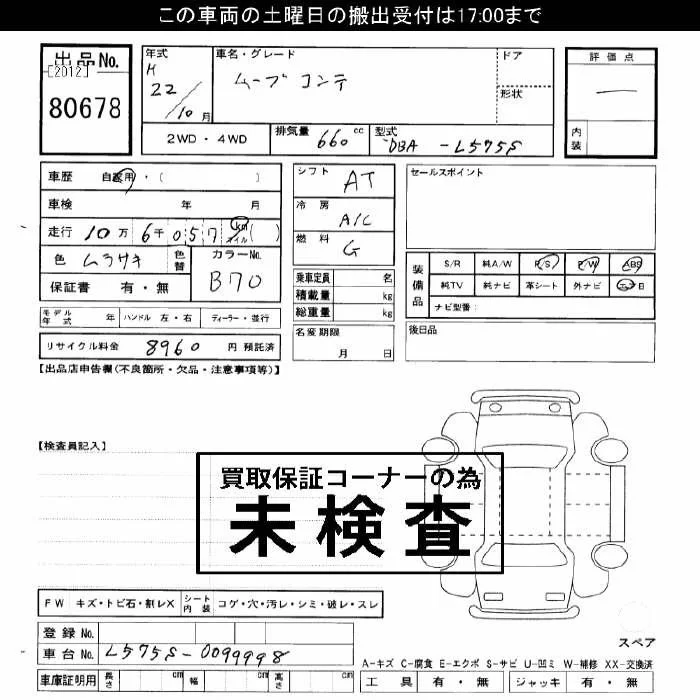 この車両の土曜日の搬出受付は17:00まで
出品No.
[2012]
80678
年式
H
22/10月
車名・グレード
ムーブ コンテ
ドア
形状
評価点
―
内装
2WD・4WD
排気量 660 cc
型式 DBA-L575S
車歴 自家用・( )
車検 年 月
走行 10万 6千 057 km マイル ( )
色 ムラサキ 色替
カラーNo. B70
保証書 有・無
モデル年式 年 ハンドル 左・右 ディーラー・並行
リサイクル料金 8960 円 預託済
シフト AT
冷房 A/C
燃料 G
乗車定員 名
積載量 kg
総重量 kg
名変期限
月 日
セールスポイント
装備品
S/R 純A/W P/S P/W ABS
純TV 純ナビ 革シート 外ナビ エアB
ナビ型番:
後日品
【出品店申告欄(不良箇所・欠品・注意事項等)】
【検査員記入】
買取保証コーナーの為
未検査
FW キズ・トビ石・割レX
シート内装 コゲ・穴・汚レ・シミ・破レ・スレ
登録No.
車台No. L575S-0099998
車庫証明用 長さ cm 幅 cm 高さ cm
スペア
A-キズ C-腐食 E-エクボ S-サビ U-凹ミ W-補修 XX-交換済
工具 有・無 ジャッキ 有・無